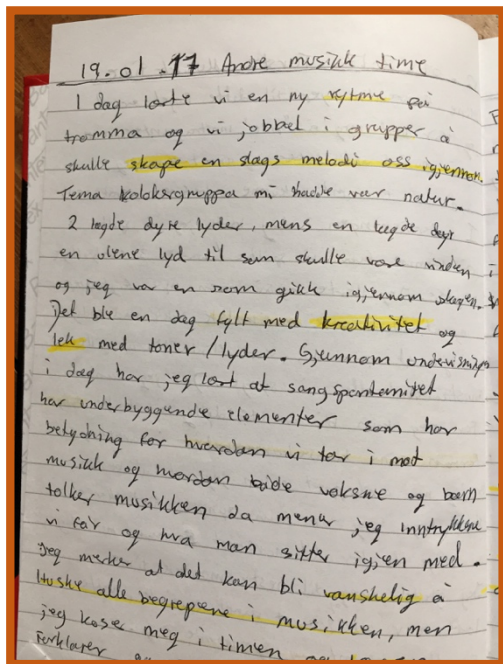 19.01.17 Andre musikk time
I dag lærte vi en ny rytme på
tromma og vi jobbet i grupper å
skulle skape en slags melodi oss igjennom.
Tema
gruppa mi hadde var natur.
2 lagde dyre lyder, mens en lagde
en ulene lyd til som skulle være vinden
og jeg var en som gikk igjennom skogen.
Det ble en dag fylt med kreativitet og
lek med toner/lyder. Gjennom undervisningen
i dag har jeg lært at sangspontanitet
har underbyggende elementer som har
betydning for hvordan vi tar i mot
musikk og hvordan både voksne og barn
tolker musikken da mener jeg inntrykkene
vi får og hva man sitter igjen med.
Jeg merker at det kan bli vanskelig å
huske alle begrepene i musikken, men
jeg kose meg i timen og
Forklarer